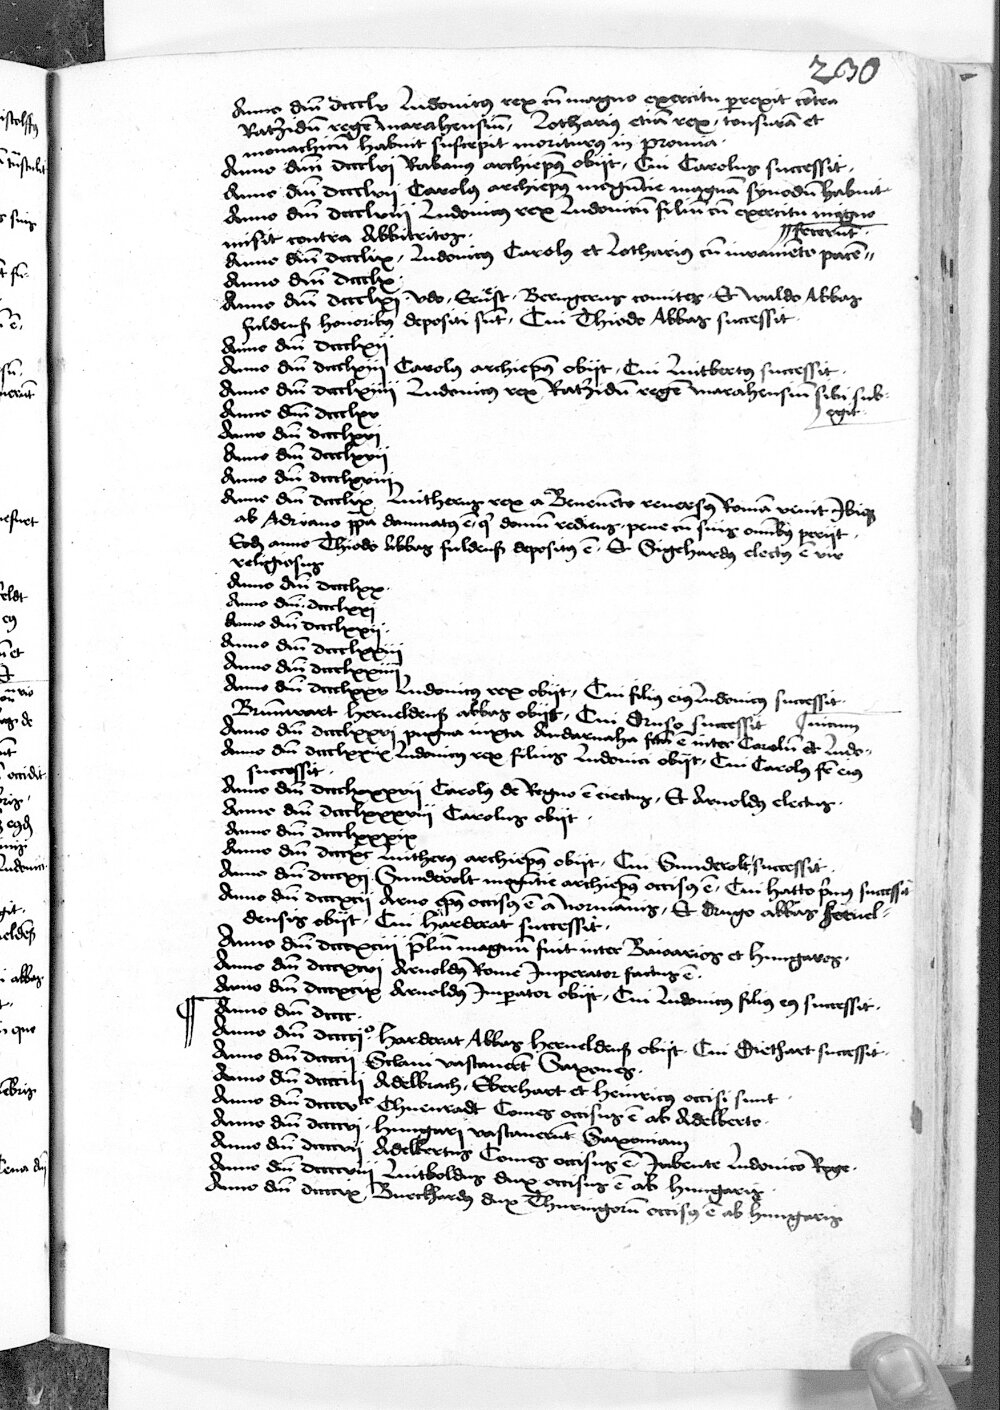 230
Anno dnī dccclv Ludouicus rex cū magno exercitu prexit cōtra
Ratzidū regē marahensiū, Lotharius etiā rex, tonsurā et
monachicū habuit suscepit moriturus in promia.
Anno dnī dccclvj Rabanus archiepūs obijt, Cui Carolus successit.
Anno dnī dccclvij Carolus archiepūs magūtie magnā synodū habuit
Anno dnī dccclviij Ludouicus rex Ludouicū filiū cū exercitu magno
misit contra Abbitritos.
Anno dnī dccclix, Ludouicus Carolus et Lotharius cū iuramēto pacē //
// fecerūt.
Anno dnī dccclx.
Anno dnī dccclxj Vdo, Ernst, Berngerus comites, Et waldo Abbas
fuldenß honoribus depositi sūt, Cui Thiodo Abbas successit.
Anno dnī dccclxij
Anno dnī dccclxiij Carolus archiepūs obijt, Cui Luitbertus successit.
Anno dnī dccclxiiij Ludouicus rex Ratzidū regē marahensiū sibi sub-
egit.
Anno dnī dccclxv
Anno dnī dccclxvj
Anno dnī dccclxvij
Anno dnī dccclxviij
Anno dnī dccclxix Luitherus rex a Beneuēto reuersus Romā venit Ibiq
ab Adriano ppa damnatus ē, q domū rediens, pene cū suis omībus perijt.
Eodē anno Thiodo Abbas fuldenß depositus ē, Et Sigehardus electus ē vir
religiosus
Anno dnī dccclxx.
Anno dnī dccclxxj
Anno dnī dccclxxij.
Anno dnī dccclxxiij
Anno dnī dccclxxiiij
Anno dnī dccclxxv Ludouicus rex obijt, Cui filius eius Ludouicus successit
Brunwart herueldenß abbas obijt, Cui Druso successit
Anno dnī dccclxxvj pugna iuxta Andarnaha fcā ē inter Carolū et Ludo-
uicum
Anno dnī dccclxxix Ludouicus rex filius Ludouici obijt, Cui Carolus fr eius
successit.
Anno dnī dccclxxxvij Carolus de Regno ē eiectus, Et Arnoldus electus.
Anno dnī dccclxxxviij Carolus obijt.
Anno dnī dccclxxxix
Anno dnī dcccxc Luitherus archiepūs obijt, Cui Sunderolt successit.
Anno dnī dcccxcj Sunderolt magūtie archiepūs occisus ē, Cui hatto prmus successit
Anno dnī dcccxcij Arno epūs occisus ē a normānis, Et Drugo abbas heruel-
densis obijt, Cui harderat successit.
Anno dnī dcccxciij prliū magnū fuit inter Baioarios et hungaros.
Anno dnī dcccxcvj Arnoldus Rome Imperator factus ē.
Anno dnī dcccxcix Arnoldus Imperator obijt, Cui Ludouicus filius eius successit.
¶ Anno dnī dcccc.
Anno dnī dccccjo. harderat Abbas herueldenß obijt. Cui Diethart successit.
Anno dnī dccccij Sclaui vastauerūt Saxones.
Anno dnī dcccciij Adelbrach, Eberhart et heinricus occisi sunt.
Anno dnī dccccvto Chuenradt Comes occisus ē ab Adelberto.
Anno dnī dccccvj. hungari vastauerūt Saxoniam
Anno dnī dccccvij Adelbertus Comes occisus ē Iubente Ludouico Rege.
Anno dnī dccccviij Luitboldus dux occisus ē ab hungaris.
Anno dnī dccccix, Burckhardus dux Thuringorū occisus ē ab hungaris